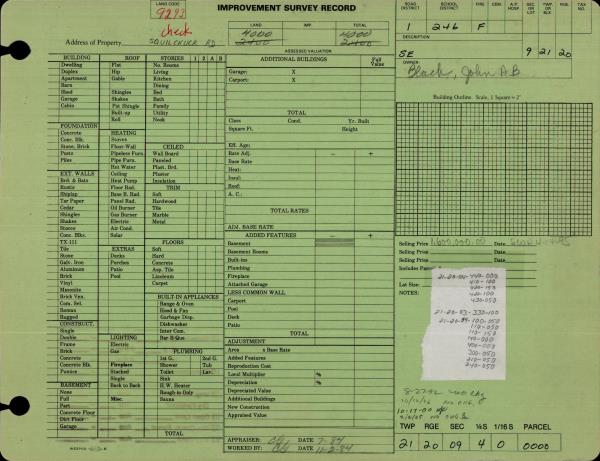 LAND CODE
9293
check
IMPROVEMENT SURVEY RECORD
LAND IMP. TOTAL
4000 4000
2400 2400
Address of Property SQUILCHUCK RD
ASSESSED VALUATION
ROAD DISTRICT SCHOOL DISTRICT FIRE CEM. A.P. HOSP. SEC. TWP. OR LOT RGE. OR BLK. TAX NO.
1 246 F
DESCRIPTION
SE 9 21 20
OWNER
Black, John A.B.
BUILDING ROOF STORIES 1 2 A B
Dwelling Flat No. Rooms
Duplex Hip Living
Apartment Gable Kitchen
Barn Dining
Shed Shingles Bed
Garage Shakes Bath
Cabin Pat. Shingle Family
Built-up Utility
Roll Nook
FOUNDATION
Concrete HEATING
Conc. Blk. Stoves CEILED
Stone, Brick Floor-Wall Wall Board
Posts Pipeless Furn. Paneled
Piles Pipe Furn. Plast. Brd.
Hot Water Plaster
EXT. WALLS Ceiling Insulation
Brd. & Bats Heat Pump TRIM
Rustic Floor Rad. Soft
Shiplap Base B. Rad. Hardwood
Tar Paper Panel Rad. Tile
Cedar Oil Burner Marble
Shingles Gas Burner Metal
Shakes Electric
Stucco Air Cond.
Conc. Blks. Solar FLOORS
TX-111 Soft
Tile EXTRAS Hard
Stone Decks Concrete
Galv. Iron Porches Asp. Tile
Aluminum Patio Linoleum
Brick Pool Carpet
Vinyl
Masonite
Brick Ven. BUILT-IN APPLIANCES
Com. Sel. Range & Oven
Roman Hood & Fan
Rugged Garbage Disp.
CONSTRUCT. Dishwasher
Single Inter Com.
Double LIGHTING Bar-B-Que
Frame Electric
Brick Gas PLUMBING
Concrete 1st G. 2nd G.
Concrete Blk. Fireplace Shower Tub
Pumice Stacked Toilet Lav.
Single Sink
BASEMENT Back to Back H.W. Heater
None Rough-in Only
Full Misc. Sauna
Part
Concrete Floor
Dirt Floor
Garage TOTAL
ADDITIONAL BUILDINGS Full Value
Garage: X
Carport: X
TOTAL
Class Cond. Yr. Built
Square Ft. Height
Eff. Age:
Rate Adj. – +
Base Rate
Heat:
Insul:
Roof:
A. C.:
TOTAL RATES
ADJ. BASE RATE
ADDED FEATURES – +
Basement
Basement Rooms
Built-ins
Plumbing
Fireplace
Attached Garage
LESS COMMON WALL
Carport
Pool
Deck
Patio
TOTAL
ADJUSTMENT
Area x Base Rate
Added Features
Reproduction Cost
Local Multiplier %
Depreciation %
Depreciated Value
Additional Buildings
New Construction
Appraised Value
APPRAISER: DATE 7-84
WORKED BY: DATE 11-2-84
Building Outline. Scale, 1 Square = 2'
Selling Price 1,600,000.00 Date
Selling Price Date
Selling Price Date
Includes Parcel
Lot Size:
NOTES:
410-100
420-100
420-050
21-20-03-330-100
21-20-04-100-050
110-050
110-150
140-000
400-000
200-050
210-050
240-050
TWP RGE SEC ¼S 1/16 S PARCEL
21 20 09 4 0 0000